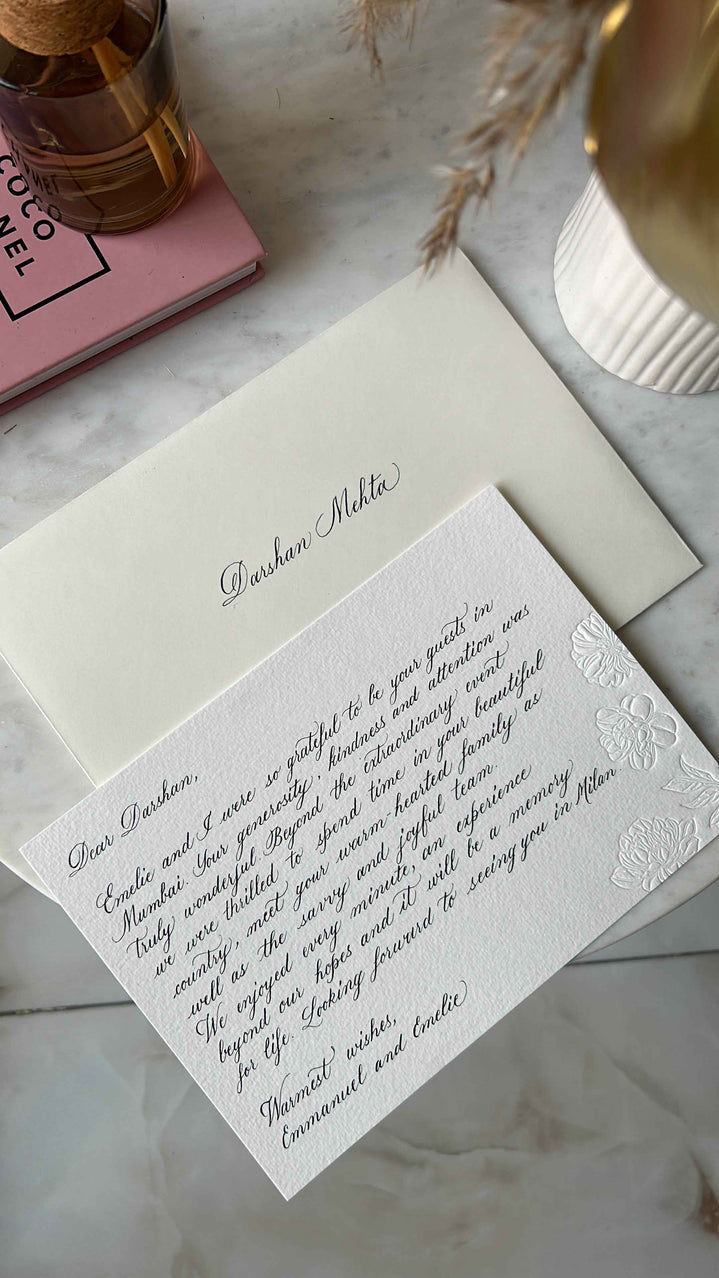 COCO
NEL
Darshan Mehta
Dear Darshan,
Emelie and I were so grateful to be your guests in
Mumbai. Your generosity, kindness and attention was
truly wonderful. Beyond the extraordinary event
we were thrilled to spend time in your beautiful
country, meet your warm-hearted family as
well as the savvy and joyful team.
We enjoyed every minute, an experience
beyond our hopes and it will be a memory
for life. Looking forward to seeing you in Milan.
Warmest wishes,
Emmanuel and Emelie